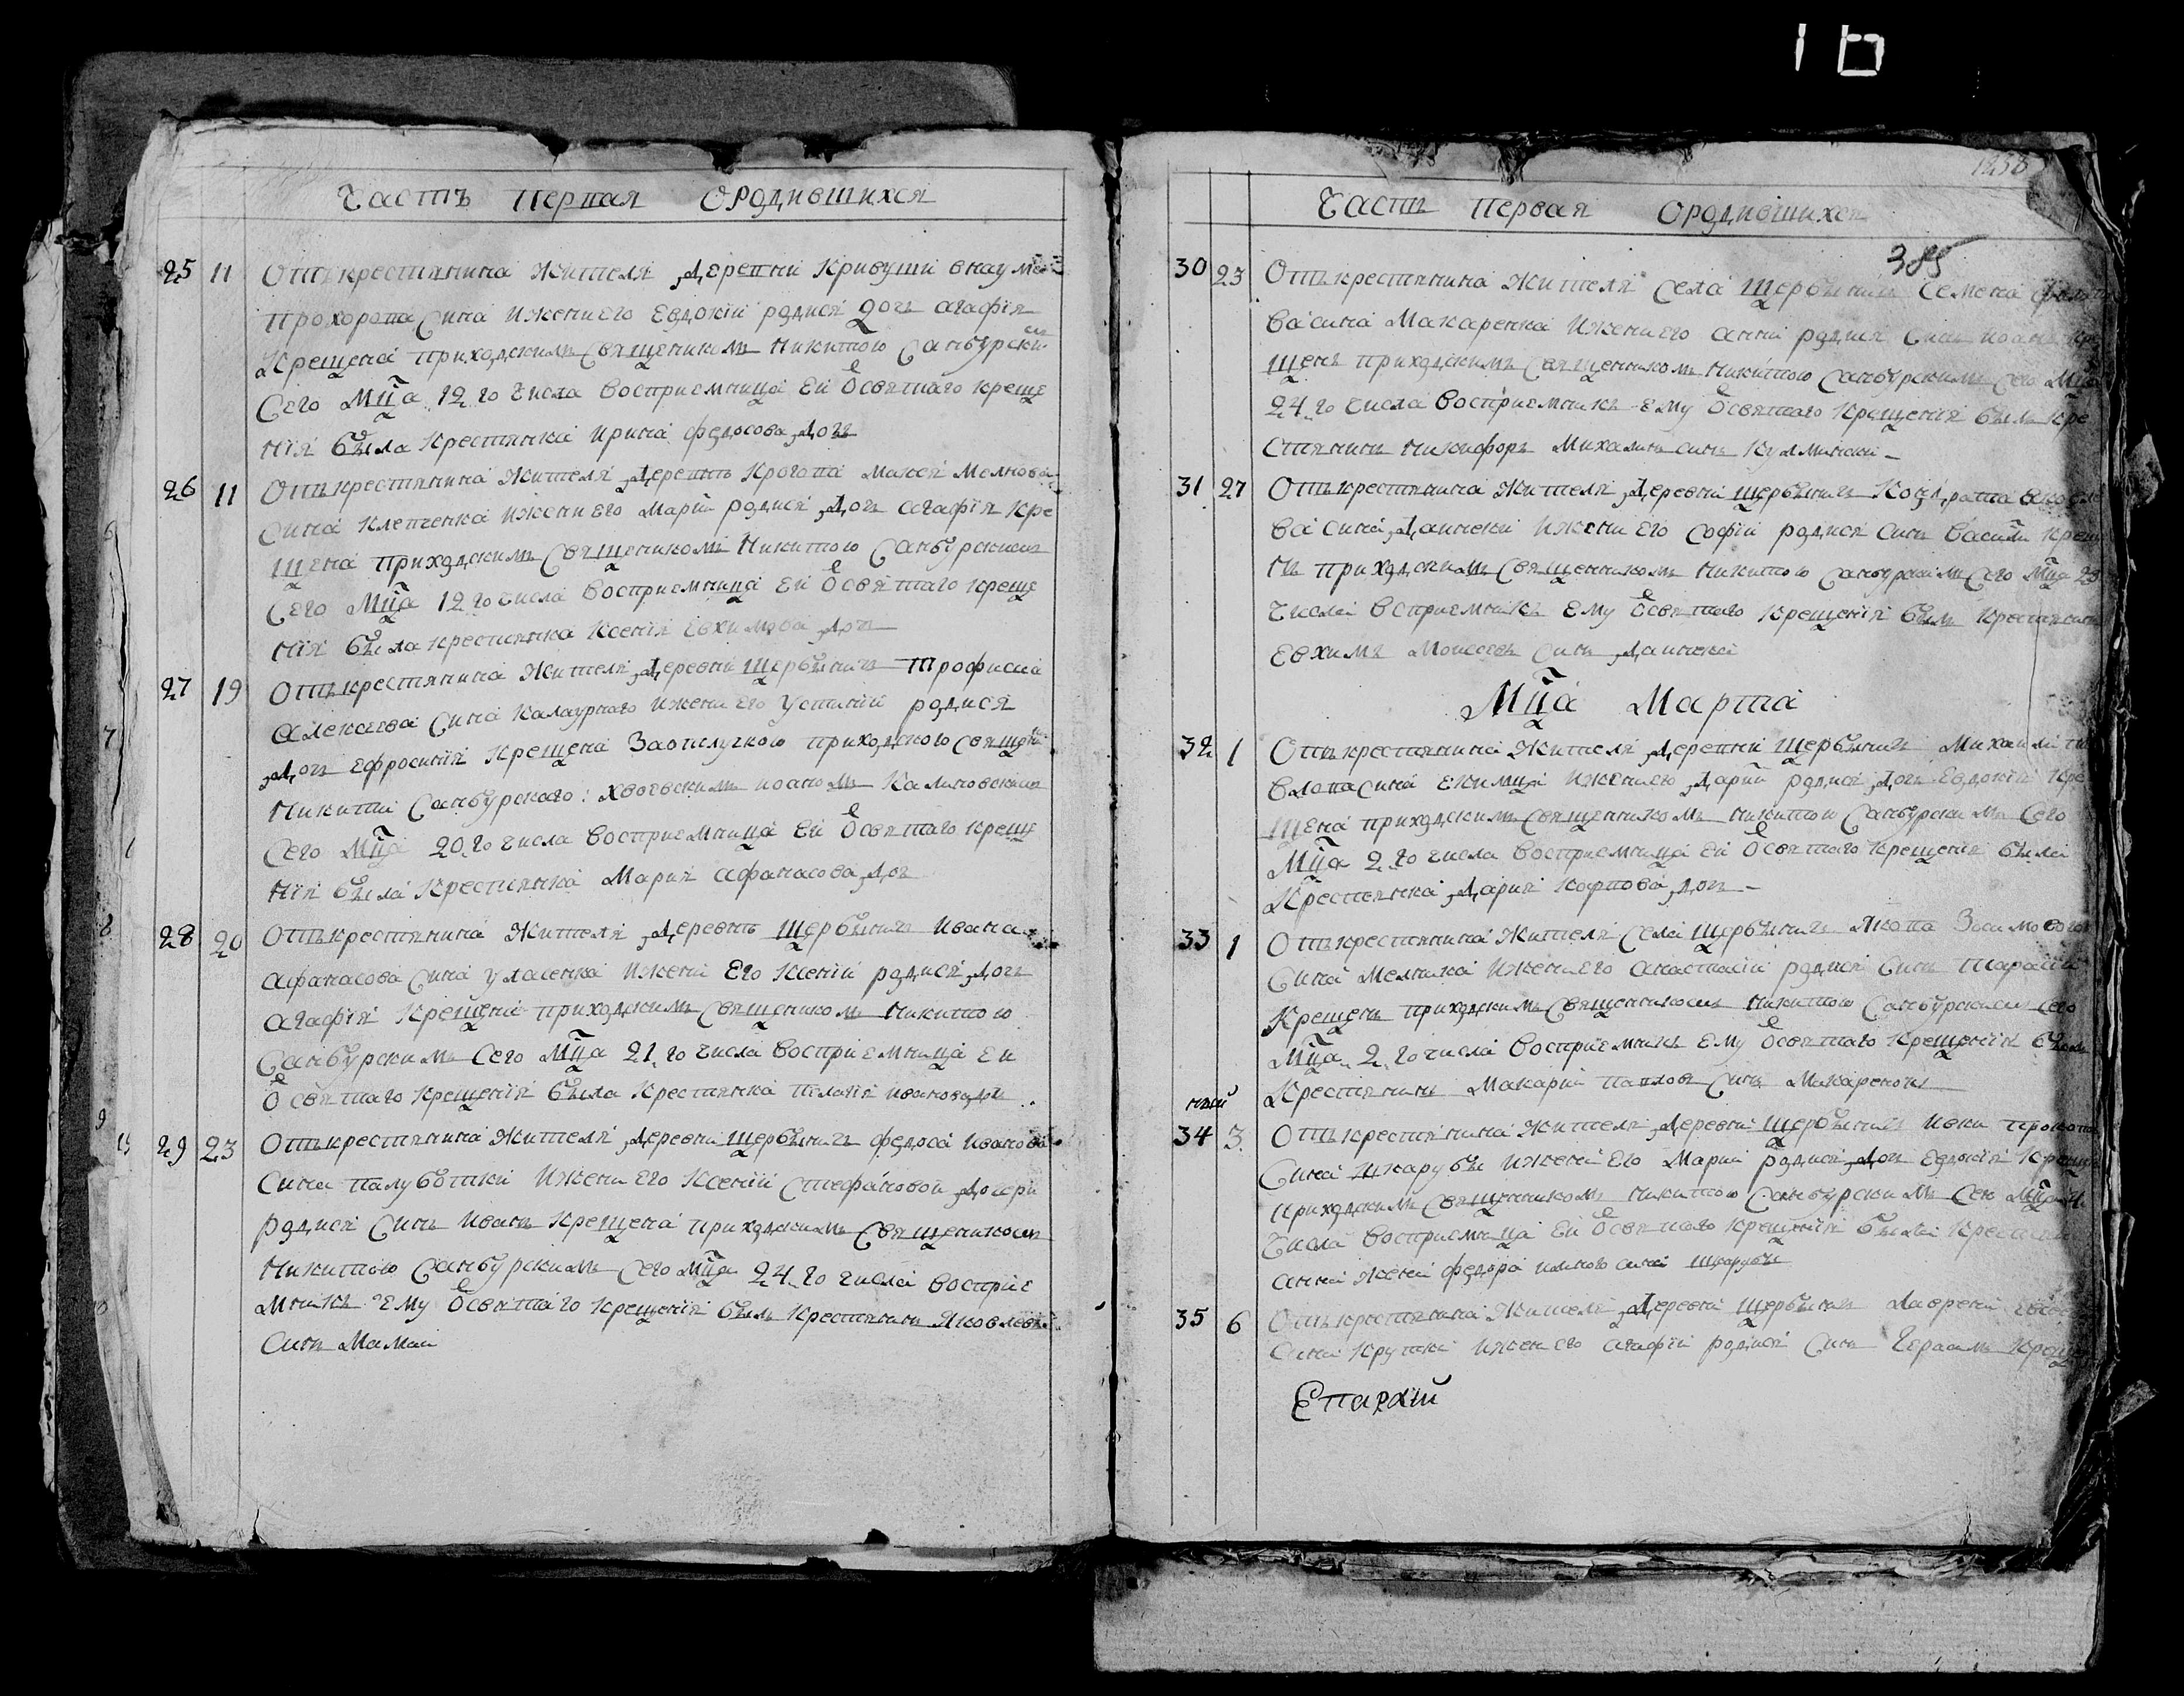 Часть Первая Ородившихся
25 11 Отъ крестянина Жителя Деревни Кривуши внаума
Прохорова Сина Ижени его Евдокіи родися дочь агафія
Крещена приходскимъ Священикомъ Никитою Самбурским
Сего Мца 12 го Числа Восприемница Ей Ѿ святаго креще
нія была Крестянка Ирина федосова Дочь
26 11 Отъ крестянина Жителя Деревнѣ
Сина Клепченка Ижени его Маріи родися Дочь агафія Кре
щена приходскимъ Священикомъ Никитою Самбурскимъ
Сего Мца 12 го числа Восприемница Ей Ѿ святаго Креще
нія была крестянка Ксенія Евхимова Дочь
27 19 Отъ крестянина Жителя Деревни Щербынихъ Трофима
Алексеева Сина Калаурного Ижени Его Устиніи родися
Дочь ефросинія Крещена Заотлучкою приходского священи
Никити Самбурского: Хвоевскимъ иоаномъ Калиновскимъ
Сего Мца 20 го числа Восприемница Ей Ѿ святаго креще
нія была Крестянка Марія афанасова Дочь
28 20 Отъ крестянина Жителя Деревнѣ Щербынихъ Ивана
афанасова Сина Уласенка Ижени Его Ксеніи родися Дочь
агафія Крещена приходскимъ Священикомъ Никитою
Самбурскимъ Сего Мца 21 го числа Восприемница Ей
Ѿ святаго Крещенія была Крестянка Пелагія иванова дч
29 23 Отъ крестянина Жителя Деревни Щербынихъ федора иванова
Сина палуботки Ижени Его Ксеніи Стефановой Дочери
родися Синъ Иванъ Крещена приходскимъ Священикомъ
Никитою Самбурскимъ Сего Мца 24 го числа Восприе
мникъ Ему Ѿ святаго Крещенія былъ Крестянинъ Яковлевъ
Синъ Мамаи
Часть Первая Ородившихся
385
30 23 Отъ крестянина Жителя Села Щербынихъ Семена
ва сина Макаренка Ижени его анни родися Синъ иоанъ Кре
щенъ приходскимъ Священникомъ Никитою Самбурскимъ Сего Мца
24 го числа Восприемникъ Ему Ѿ святаго Крещенія былъ Кре
стянинъ Никифоръ Михалинъ синъ
31 27 Отъ крестянина Жителя Деревни Щербынихъ
ва сина Даински Ижени Его Софіи родися Синъ Василь Креще
нъ приходскимъ Священникомъ Никитою Самбурскимъ Сего Мца 28
Числа Восприемникъ Ему Ѿ святаго Крещенія былъ Крестянинъ
Евхимъ Моисеевъ Синъ
Мца Марта
32 1 Отъ крестянина Жителя Деревни Щербынихъ Михаила Па
влова Сина Екимца Ижени его Даріи родися Дочь Евдокія Кре
щена приходскимъ Священникомъ Никитою Самбурскимъ Сего
Мца 2 го числа Восприемница Ей Ѿ святаго Крещенія была
Крестянка Дария Карпова Дочь
33 1 Отъ крестянина Жителя Села Щербынихъ Якова Зосимового
Сина Мелника Ижени его анастасіи родися Синъ Тарасій
Крещенъ приходскимъ Священникомъ Никитою Самбурскимъ Сего
Мца 2 го числа Восприемникъ Ему Ѿ святаго Крещенія былъ
Крестянинъ Макарій павловъ Синъ Макаренокъ
34 3 Отъ крестянина Жителя Деревни Щербынихъ Ивки прокопа
Сина Шкарубы Ижени Его Маріи родися Дочь Евдокія Креще
приходскимъ Священникомъ Никитою Самбурскимъ Сего Мца
Числа Восприемница Ей Ѿ святаго Крещенія была Крестянка
анна Жена федора сина Шкарубы
35 6 Отъ крестянина Жителя Деревни Щербынихъ Лаврентія
Сина Крупки Ижени его агафіи родися Синъ Герасимъ Креще
Епархіи